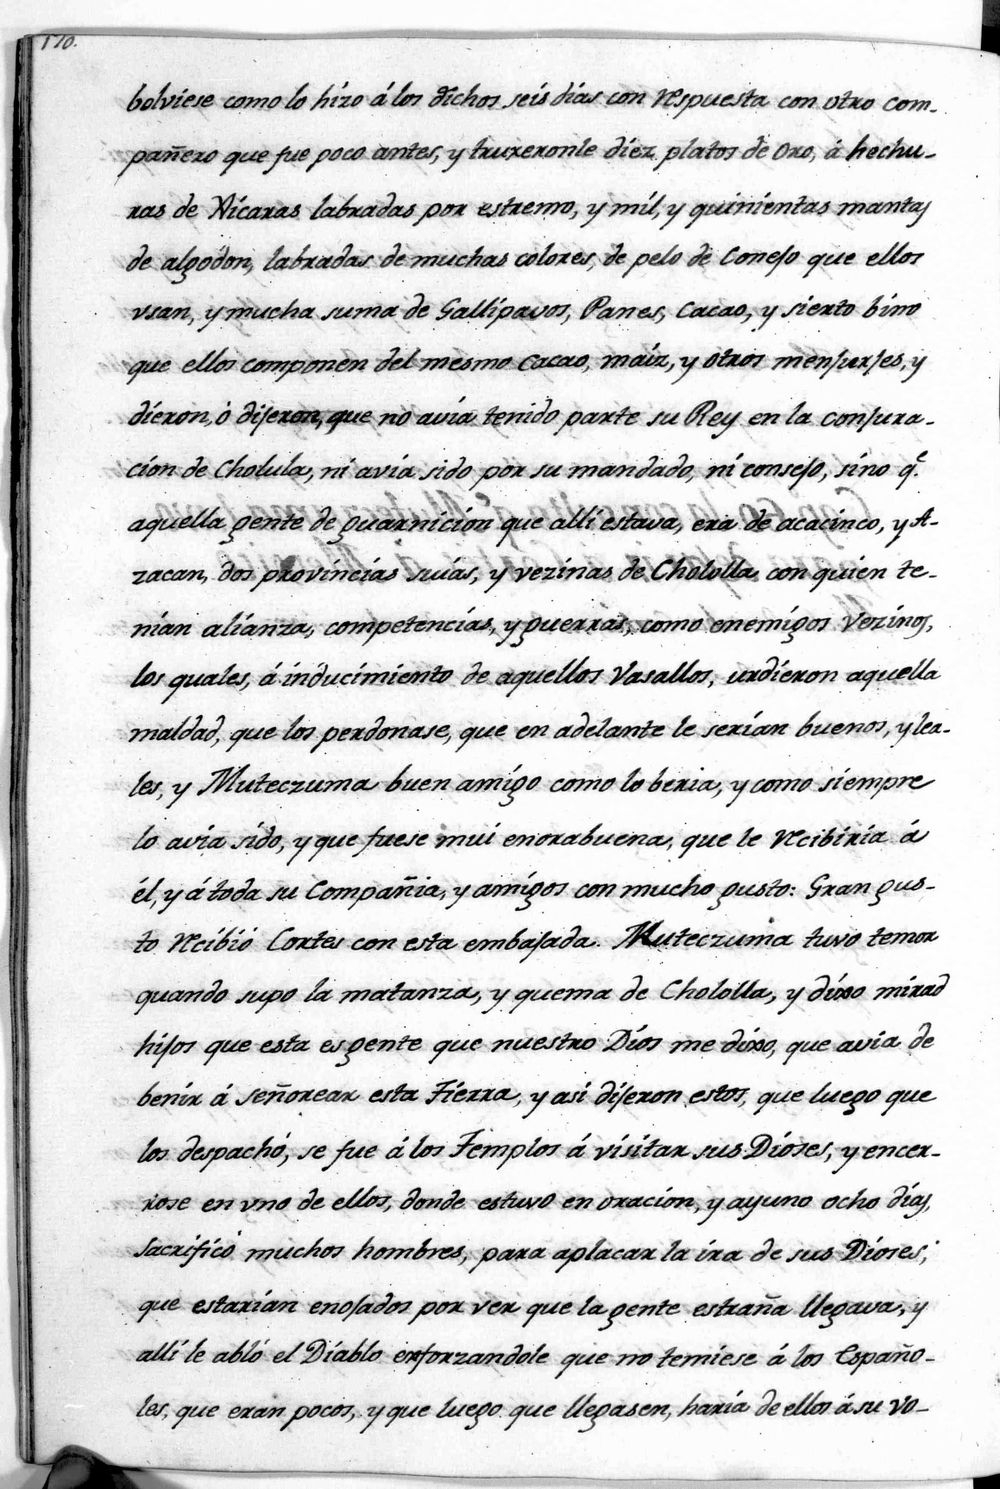 170.
bolviese como lo hizo á los dichos seis dias con respuesta con otro com-
pañero que fue poco antes, y truxeronle diez platos de Oro, á hechu-
ras de Xicaras labradas por estremo, y mil, y quinientas mantas
de algodon, labradas de muchas colores, de pelo de Conejo que ellos
vsan, y mucha suma de Gallipavos, Panes, Cacao, y sierto bino
que ellos componen del mesmo Cacao, maiz, y otros menjurjes, y
dieron, ò dijeron, que no avia tenido parte su Rey en la conjura-
cion de Cholula, ni avia sido por su mandado, ni consejo, sino q.e
aquella gente de guarnicion que alli estava, era de acacinco, y A-
zacan, dos provincias suias, y vezinas de Chololla, con quien te-
nian alianza, competencias, y guerras, como enemigos Vezinos,
los quales, á inducimiento de aquellos Vasallos, urdieron aquella
maldad, que los perdonase, que en adelante le serian buenos, y lea-
les, y Muteczuma buen amigo como lo beria, y como siempre
lo avia sido, y que fuese mui enorabuena, que le recibiria á
él, y á toda su Compañia, y amigos con mucho gusto: Gran gus-
to recibió Cortes con esta embajada. Muteczuma tuvo temor
quando supo la matanza, y quema de Chololla, y dixo mirad
hijos que esta es gente que nuestro Dios me dixo, que avia de
benir á señorear esta Tierra, y asi dijeron estos, que luego que
los despachó, se fue á los Templos á visitar sus Dioses, y encer-
rose en vno de ellos, donde estuvo en oracion, y ayuno ocho dias,
sacrificó muchos hombres, para aplacar la ira de sus Dioses,
que estarian enojados por ver que la gente estraña llegava, y
alli le abló el Diablo esforzandole que no temiese á los Españo-
les, que eran pocos, y que luego que llegasen, haria de ellos á su vo-